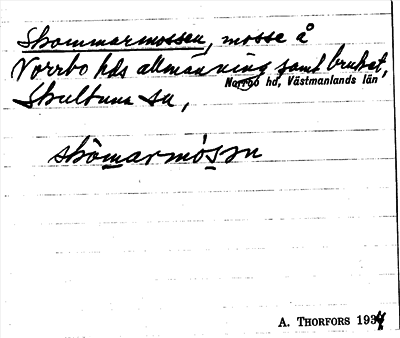 Skommarmossen, mosse å
Norrbo hds allmänning samt bruket,
Norrbo hd, Västmanlands län
Skultuna sn,
skòmarmósɔn
A. THORFORS 1934